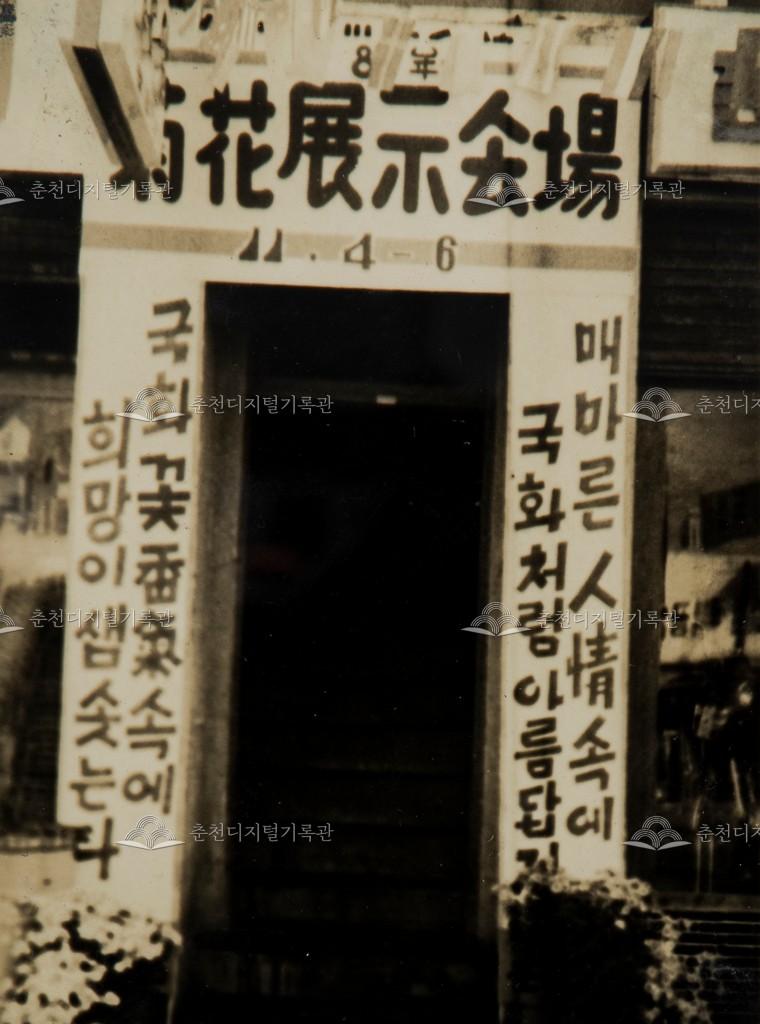 菊花展示会場
11.4-6
매마른 人情속에
국화처럼 아름답게
국화꽃 香氣속에
희망이 샘솟는다
춘천디지털기록관
춘천디지털기록관
춘천디지털기록관
춘천디지털기록관
춘천디지털기록관
춘천디지털기록관
춘천디지털기록관